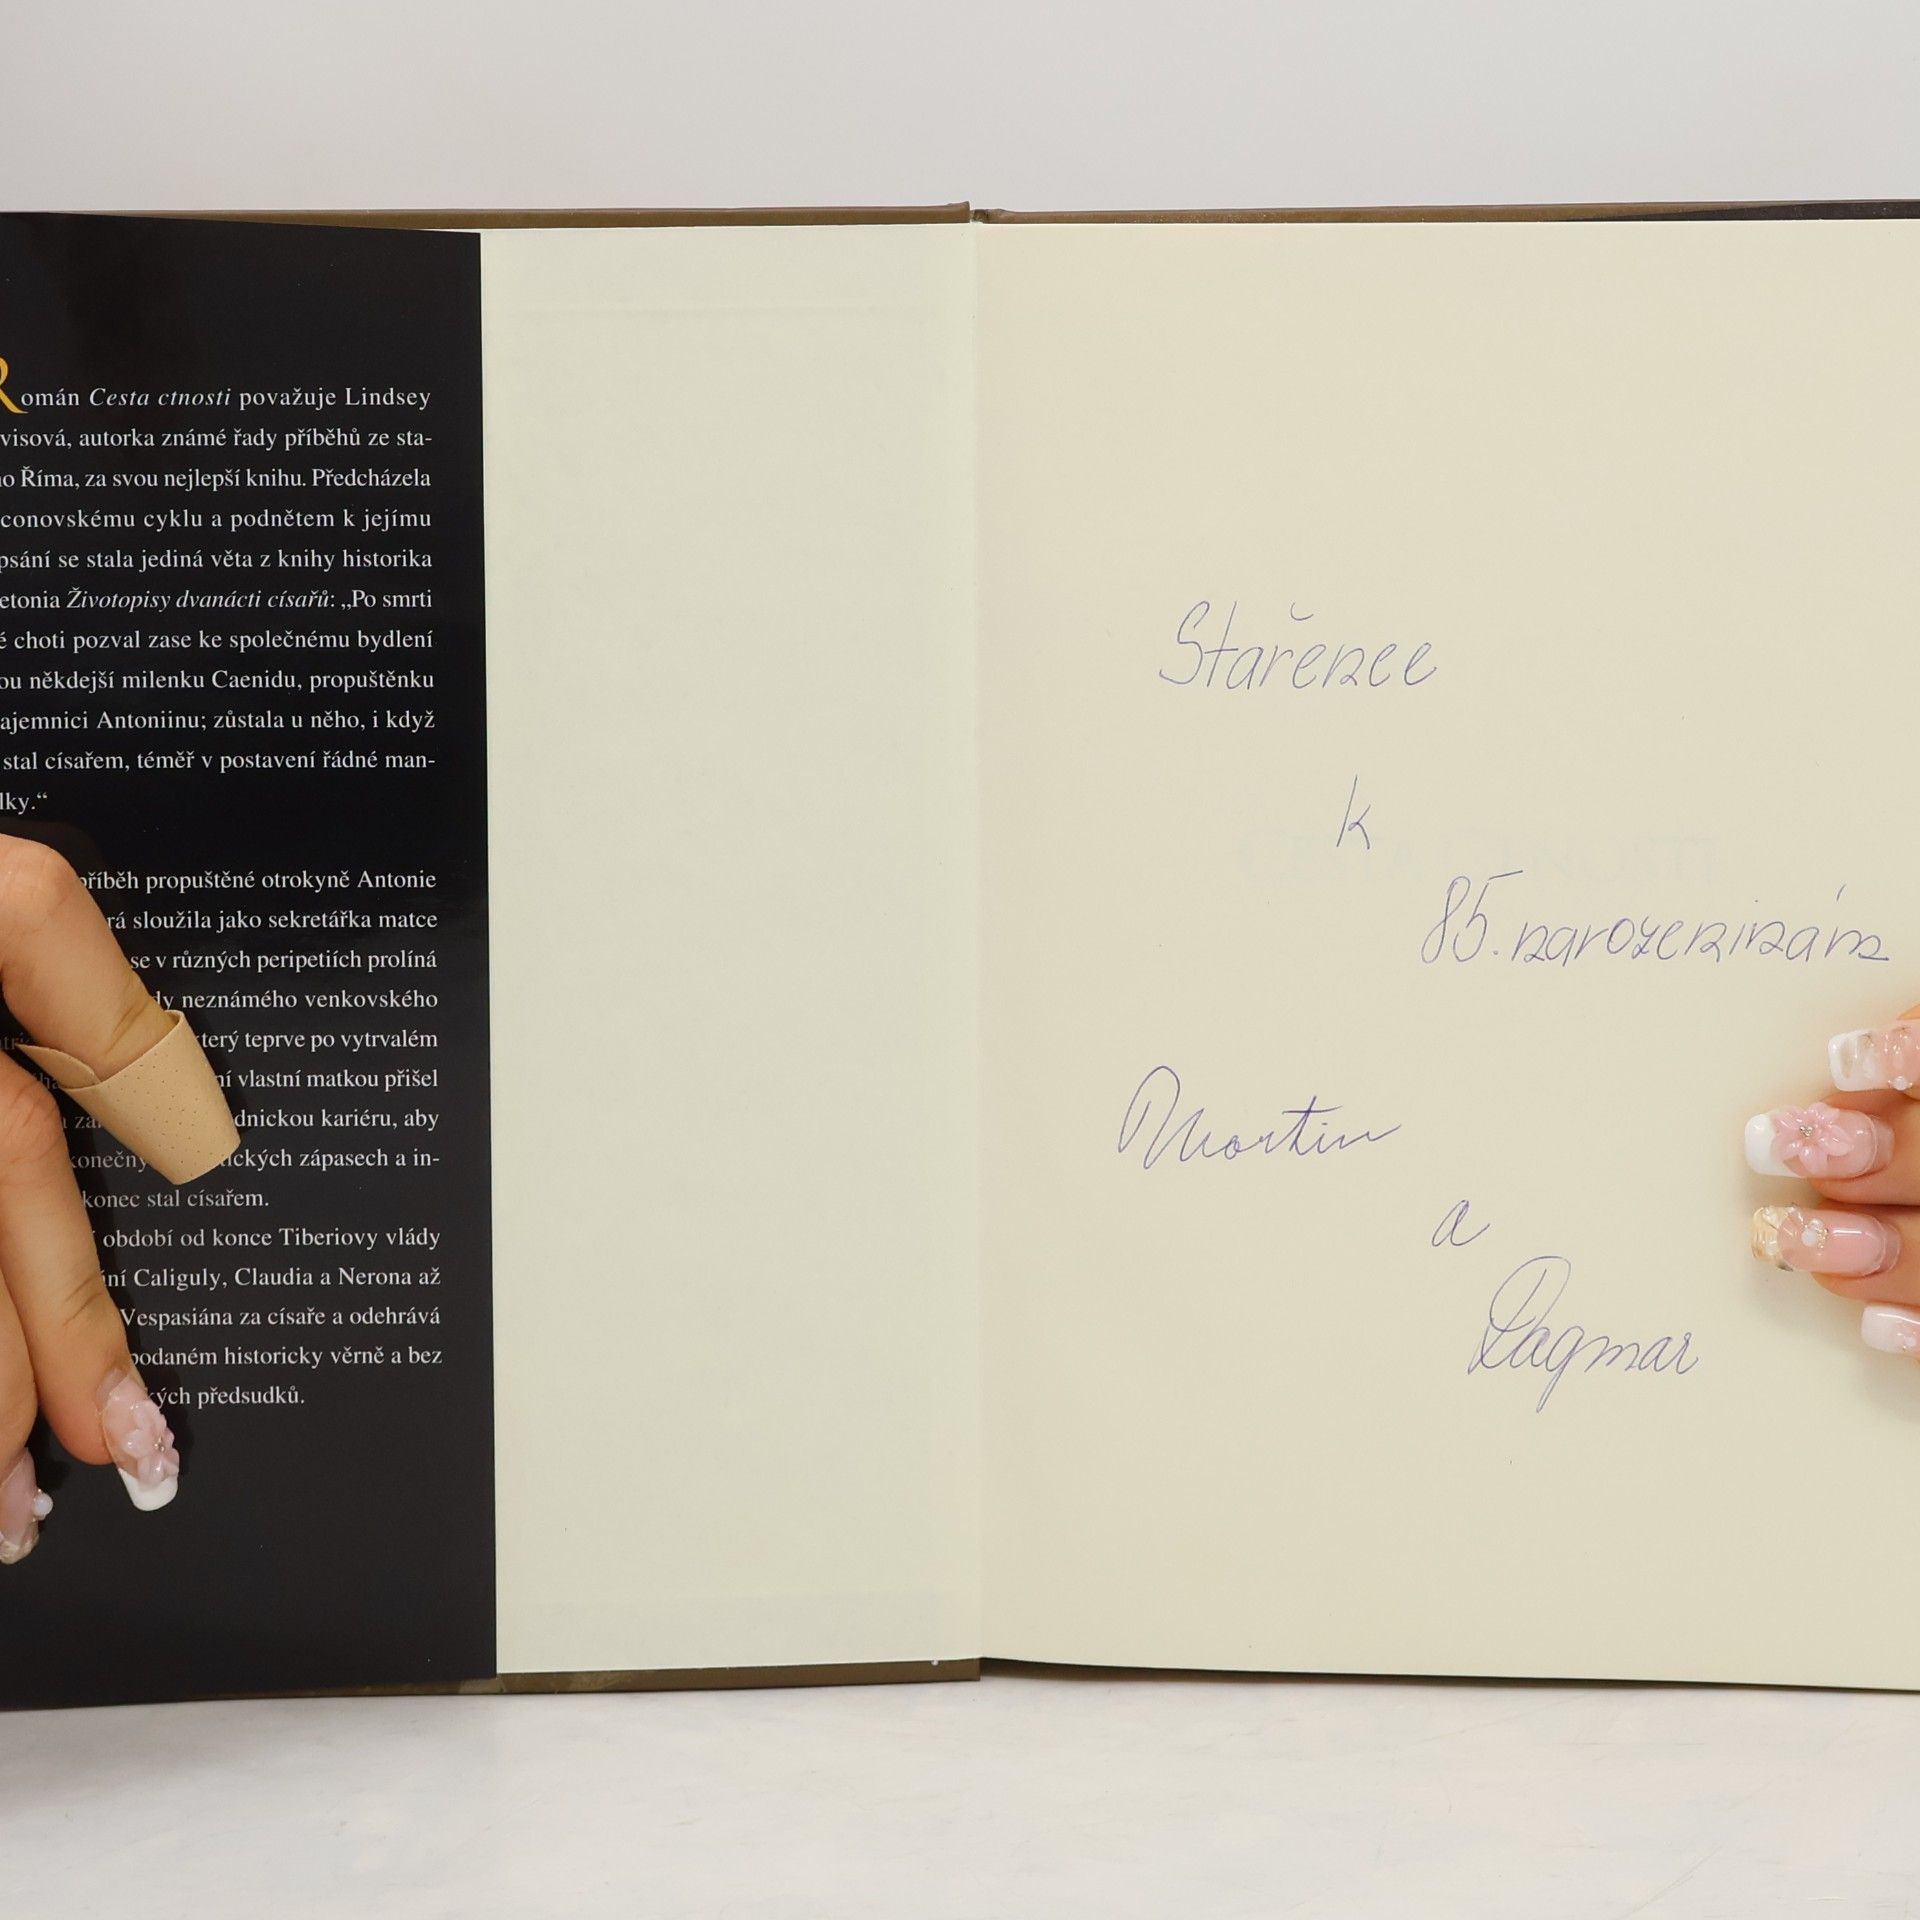 Román Cesta ctnosti považuje Lindsey
visová, autorka známé řady příběhů ze sta-
o Říma, za svou nejlepší knihu. Předcházela
conovskému cyklu a podnětem k jejímu
psání se stala jediná věta z knihy historika
etonia Životopisy dvanácti císařů: „Po smrti
é choti pozval zase ke společnému bydlení
ou někdejší milenku Caenidu, propuštěnku
ajemnici Antoniinu; zůstala u něho, i když
stal císařem, téměř v postavení řádné man-
lky.“
příběh propuštěné otrokyně Antonie
rá sloužila jako sekretářka matce
se v různých peripetiích prolíná
dy neznámého venkovského
který teprve po vytrvalém
ní vlastní matkou přišel
dnickou kariéru, aby
konečny ických zápasech a in-
konec stal císařem.
období od konce Tiberiovy vlády
ání Caliguly, Claudia a Nerona až
Vespasiána za císaře a odehrává
podaném historicky věrně a bez
kých předsudků.
Stařence
k
85. narozeninám
Martin
a
Dagmar